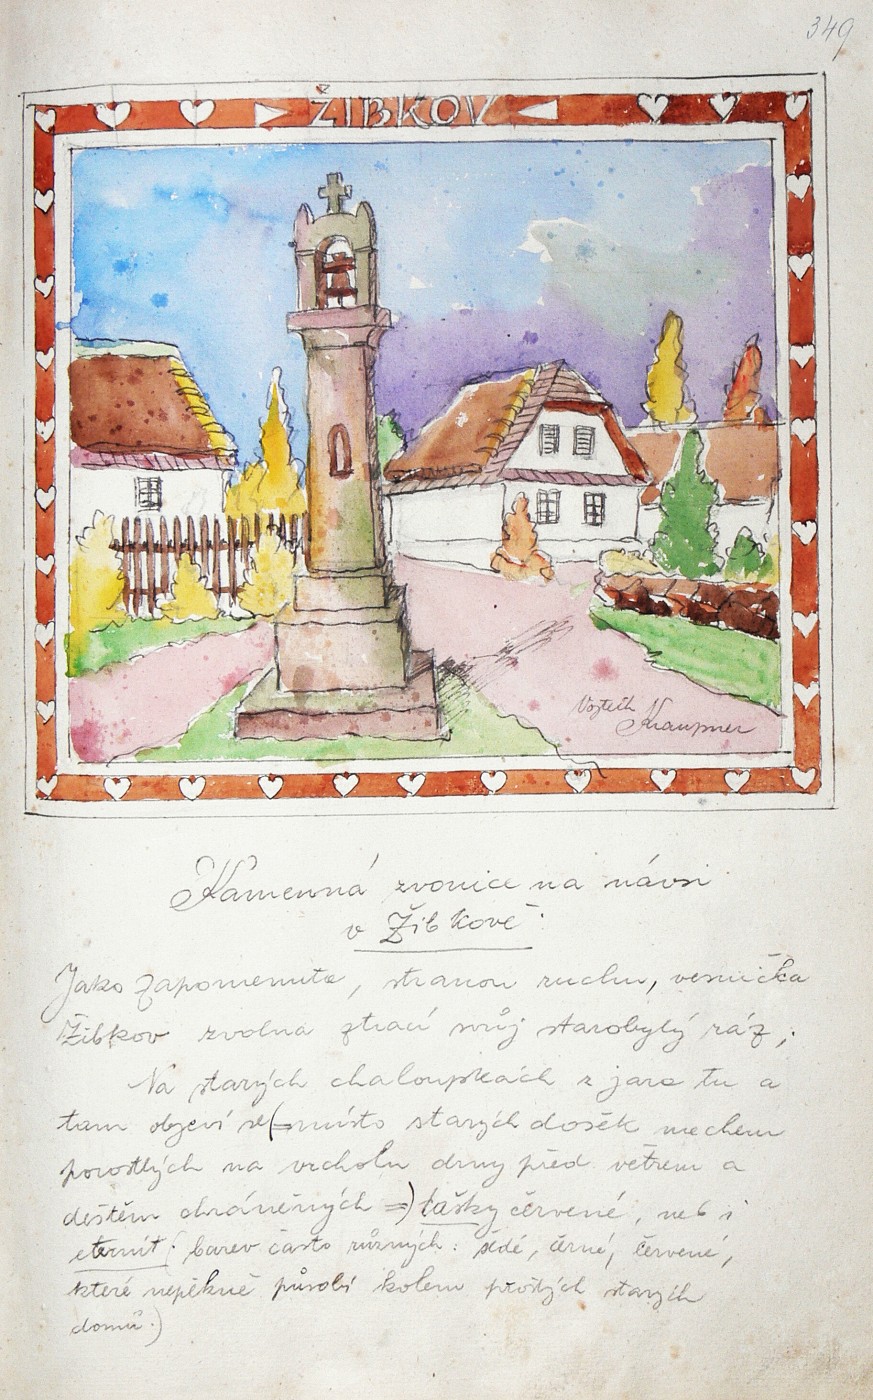 349
ŽIBKOV
Vojtěch Kraupner
Kamenná zvonice na návsi
v Žibkově:
Jako zapomenuta, stranou ruchu, vesnička
Žibkov zvolna ztrací svůj starobylý ráz;
Na starých chaloupkách z jara tu a
tam objeví se (= místo starých došěk mechem
porostlých na vrcholu drny před větrem a
deštěm chráněných =) tašky červené, neb i
eternit (barev často různých: šedé, černé, červené,
které nepěkně působí kolem prostých starých
domů.)